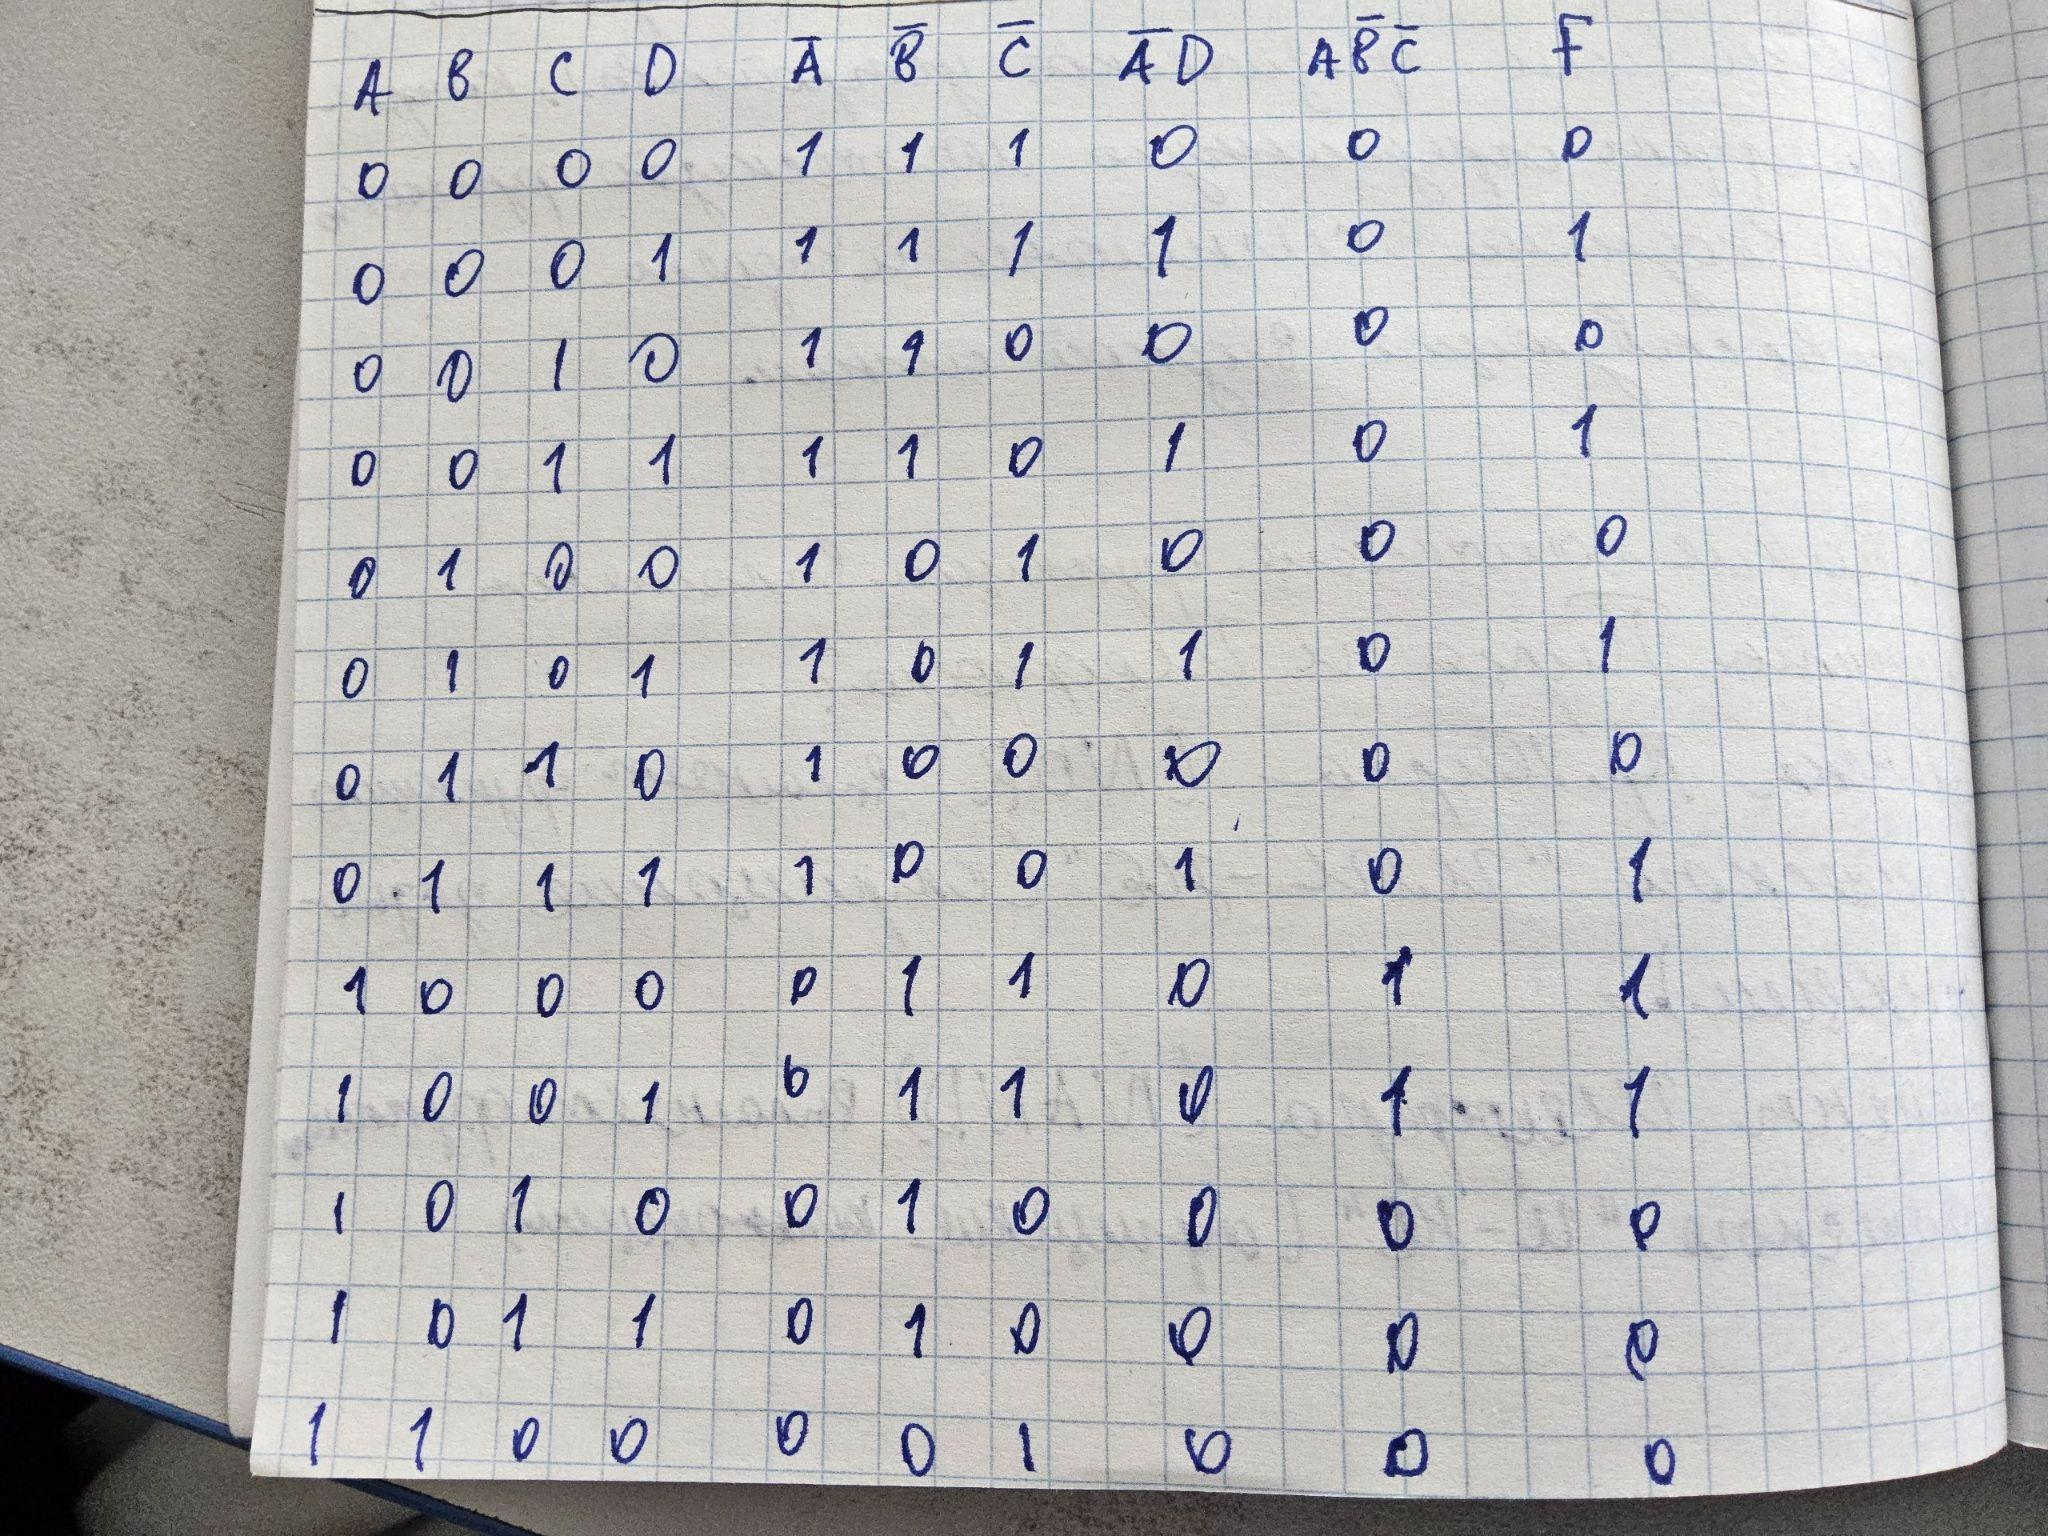 A B C D A̅ B̅ C̅ A̅D AB̅C̅ F
0 0 0 0 1 1 1 0 0 0
0 0 0 1 1 1 1 1 0 1
0 0 1 0 1 1 0 0 0 0
0 0 1 1 1 1 0 1 0 1
0 1 0 0 1 0 1 0 0 0
0 1 0 1 1 0 1 1 0 1
0 1 1 0 1 0 0 0 0 0
0 1 1 1 1 0 0 1 0 1
1 0 0 0 0 1 1 0 1 1
1 0 0 1 0 1 1 0 1 1
1 0 1 0 0 1 0 0 0 0
1 0 1 1 0 1 0 0 0 0
1 1 0 0 0 0 1 0 0 0